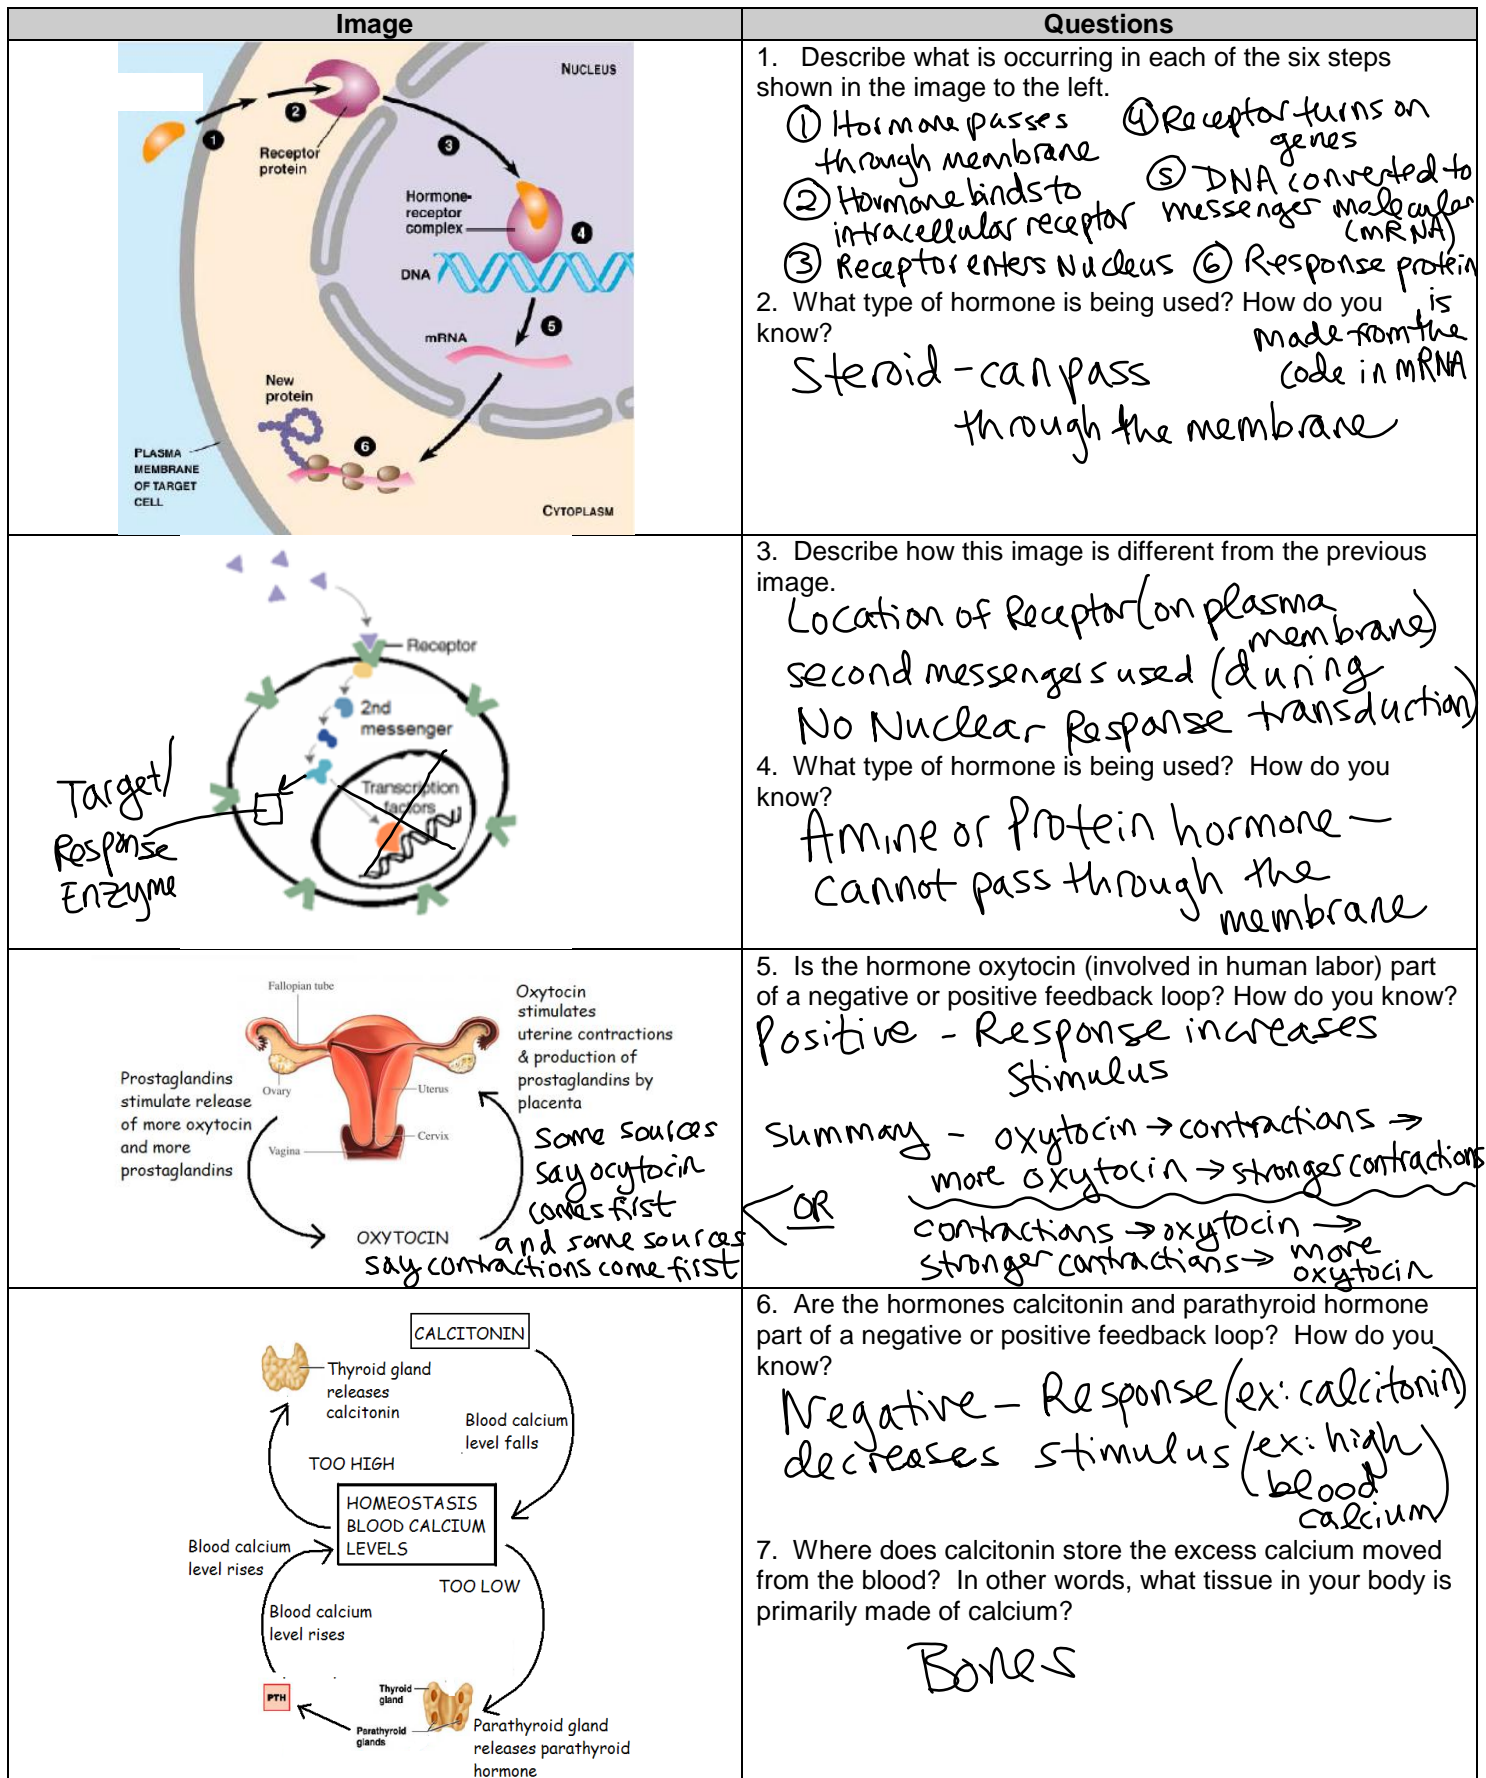 Image
Questions
NUCLEUS
Receptor
protein
Hormone-
receptor
complex
DNA
mRNA
New
protein
PLASMA
MEMBRANE
OF TARGET
CELL
CYTOPLASM
1
2
3
4
5
6
1. Describe what is occurring in each of the six steps
shown in the image to the left.
① Hormone passes
through membrane
② Hormone binds to
intracellular receptor
③ Receptor enters Nucleus
④ Receptor turns on
genes
⑤ DNA converted to
messenger molecular
(mRNA)
⑥ Response protein
is
made from the
code in mRNA
2. What type of hormone is being used? How do you
know?
Steroid - can pass
through the membrane
Receptor
2nd
messenger
Transcription
factors
Target/
Response
Enzyme
3. Describe how this image is different from the previous
image.
Location of Receptor (on plasma
membrane)
second messengers used (during
transduction)
No Nuclear Response
4. What type of hormone is being used? How do you
know?
Amine or Protein hormone -
cannot pass through the
membrane
Fallopian tube
Ovary
Uterus
Cervix
Vagina
Oxytocin
stimulates
uterine contractions
& production of
prostaglandins by
placenta
Prostaglandins
stimulate release
of more oxytocin
and more
prostaglandins
OXYTOCIN
some sources
say ocytocin
comes first
and some sources
say contractions come first
5. Is the hormone oxytocin (involved in human labor) part
of a negative or positive feedback loop? How do you know?
Positive - Response increases
stimulus
Summay - oxytocin → contractions →
more oxytocin → stronger contractions
OR
contractions → oxytocin →
stronger contractions → more
oxytocin
CALCITONIN
Thyroid gland
releases
calcitonin
Blood calcium
level falls
TOO HIGH
HOMEOSTASIS
BLOOD CALCIUM
LEVELS
Blood calcium
level rises
TOO LOW
Blood calcium
level rises
PTH
Thyroid
gland
Parathyroid
glands
Parathyroid gland
releases parathyroid
hormone
6. Are the hormones calcitonin and parathyroid hormone
part of a negative or positive feedback loop? How do you
know?
Negative - Response (ex: calcitonin)
decreases stimulus (ex: high
blood
calcium)
7. Where does calcitonin store the excess calcium moved
from the blood? In other words, what tissue in your body is
primarily made of calcium?
Bones